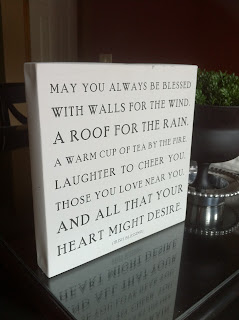 MAY YOU ALWAYS BE BLESSED
WITH WALLS FOR THE WIND.
A ROOF FOR THE RAIN.
A WARM CUP OF TEA BY THE FIRE
LAUGHTER TO CHEER YOU.
THOSE YOU LOVE NEAR YOU,
AND ALL THAT YOUR
HEART MIGHT DESIRE.